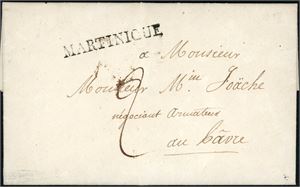 MARTINIQUE
a Monsieur
Monsieur M.in Joäche
négociant armateur
au hâvre
2